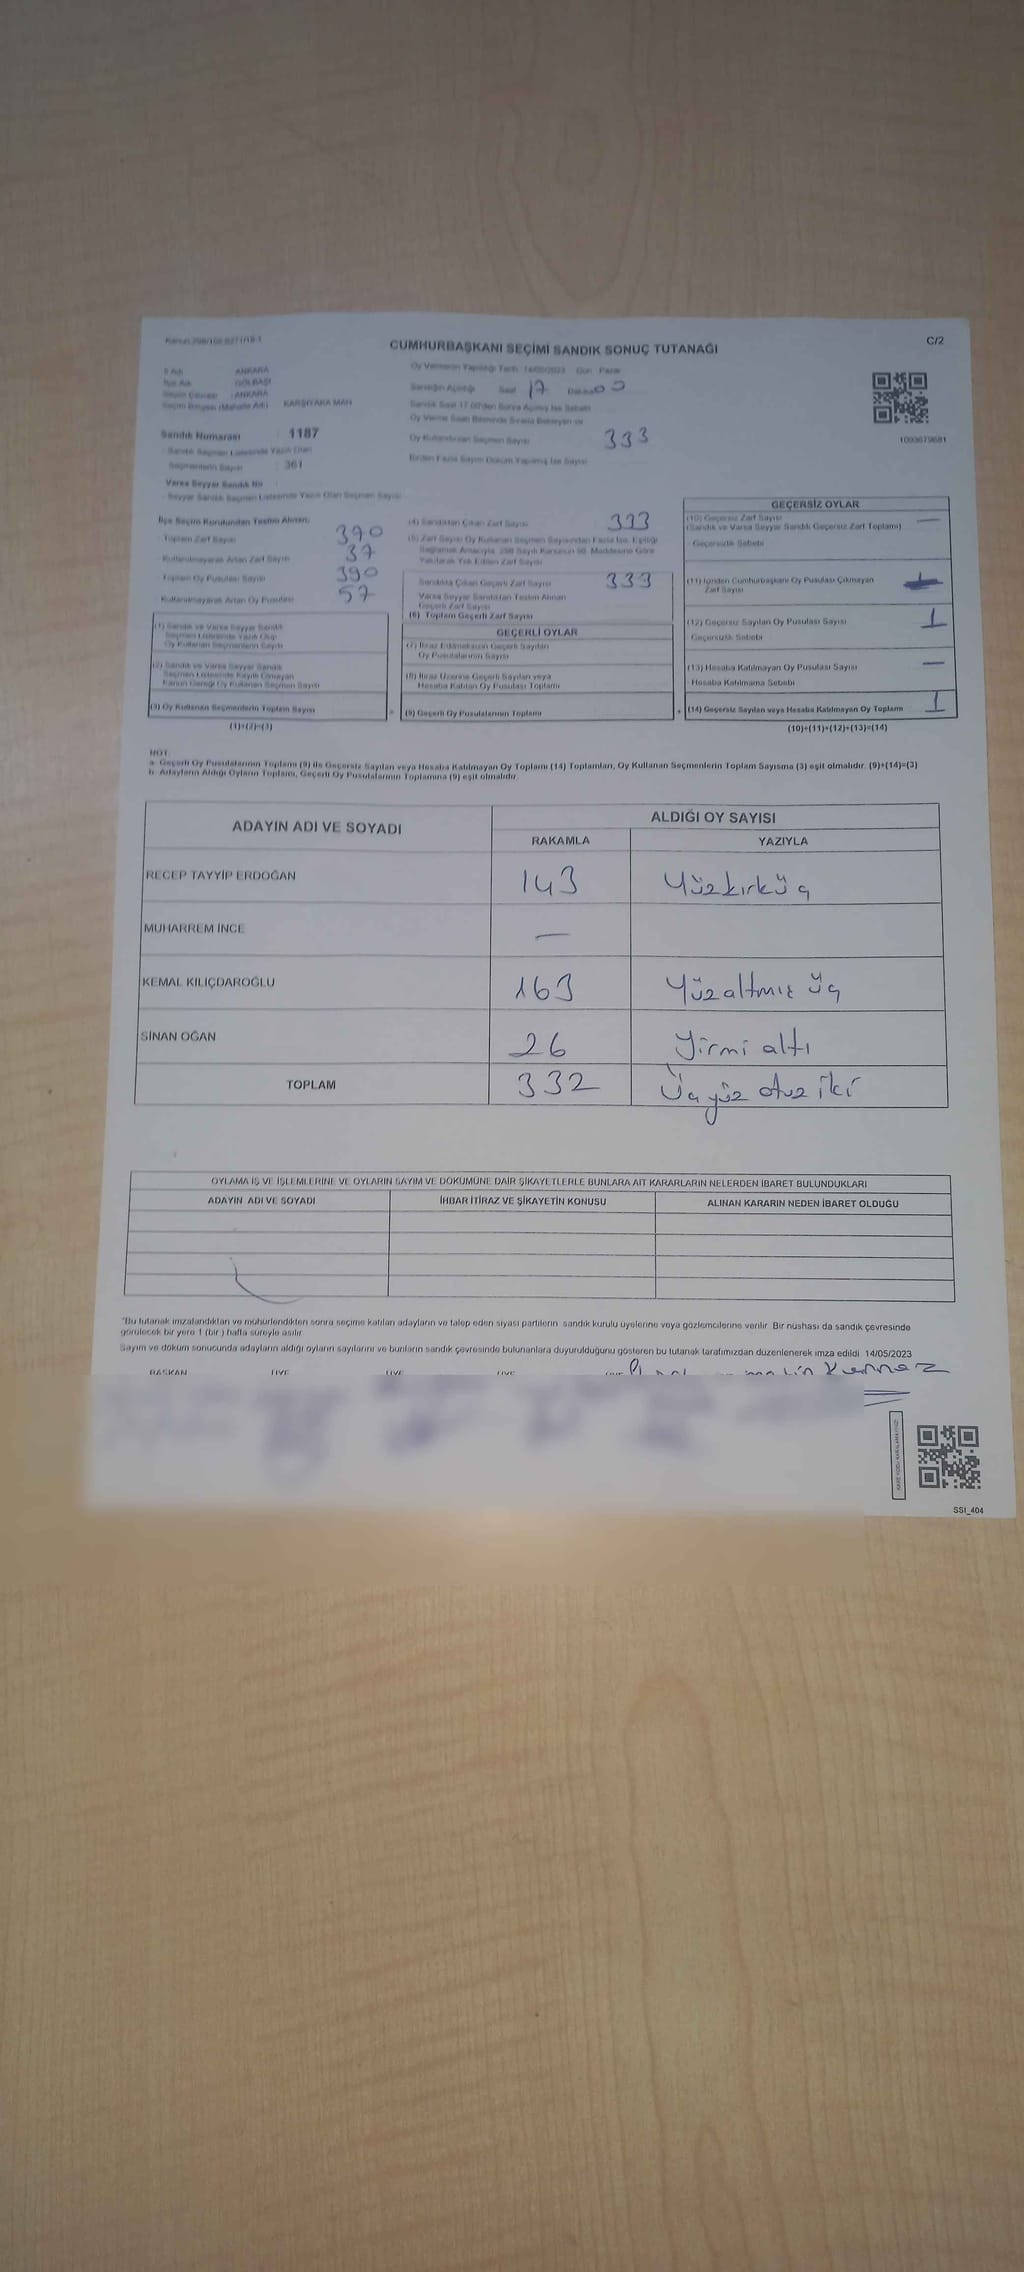 CUMHURBAŞKANI SEÇİMİ SANDIK SONUÇ TUTANAĞI
C/2
İl Adı : ANKARA
İlçe Adı : GÖLBAŞI
Seçim Çevresi : ANKARA
Seçim Bölgesi (Mahalle Adı) : KARŞIYAKA MAH
Sandık Numarası : 1187
Sandık Seçmen Listesinde Yazılı Olan
Seçmenlerin Sayısı : 361
Varsa Seyyar Sandık No
Seyyar Sandık Seçmen Listesinde Yazılı Olan Seçmen Sayısı
Oy Vermenin Yapıldığı Tarih 14/05/2023 Gün Pazar
Sandığın Açıldığı Saat 17 Dakika 00
Sandık Saat 17.00'den Sonra Açılmış İse Sebebi
Oy Kullandırılan Seçmen Sayısı 333
Birden Fazla Sayım Döküm Yapılmış İse Sayısı
İlçe Seçim Kurulundan Teslim Alınan;
Toplam Zarf Sayısı 390
Kullanılmayarak Artan Zarf Sayısı 37
Toplam Oy Pusulası Sayısı 390
Kullanılmayarak Artan Oy Pusulası 57
(1) Sandık ve Varsa Seyyar Sandık
Seçmen Listesinde Yazılı Olup
Oy Kullanan Seçmenlerin Sayısı
(2) Sandık ve Varsa Seyyar Sandık
Seçmen Listesinde Kayıtlı Olmayan
Kanun Gereği Oy Kullanan Seçmen Sayısı
(3) Oy Kullanan Seçmenlerin Toplam Sayısı
(1)+(2)=(3)
(4) Sandıktan Çıkan Zarf Sayısı 333
(5) Zarf Sayısı Oy Kullanan Seçmen Sayısından Fazla İse, Eşitliği
Sağlamak Amacıyla, 298 Sayılı Kanunun 98. Maddesine Göre
Yakılarak Yok Edilen Zarf Sayısı
Sandıkta Çıkan Geçerli Zarf Sayısı 333
Varsa Seyyar Sandıktan Teslim Alınan
Geçerli Zarf Sayısı
(6) Toplam Geçerli Zarf Sayısı
GEÇERLİ OYLAR
(7) İtiraz Edilmeksizin Geçerli Sayılan
Oy Pusulalarının Sayısı
(8) İtiraz Üzerine Geçerli Sayılan veya
Hesaba Katılan Oy Pusulası Toplamı
(9) Geçerli Oy Pusulalarının Toplamı
1093879681
GEÇERSİZ OYLAR
(10) Geçersiz Zarf Sayısı —
(Sandık ve Varsa Seyyar Sandık Geçersiz Zarf Toplamı)
Geçersizlik Sebebi
(11) İçinden Cumhurbaşkanı Oy Pusulası Çıkmayan
Zarf Sayısı
(12) Geçersiz Sayılan Oy Pusulası Sayısı 1
Geçersizlik Sebebi
(13) Hesaba Katılmayan Oy Pusulası Sayısı —
Hesaba Katılmama Sebebi
(14) Geçersiz Sayılan veya Hesaba Katılmayan Oy Toplamı 1
(10)+(11)+(12)+(13)=(14)
NOT:
a- Geçerli Oy Pusulalarının Toplamı (9) ile Geçersiz Sayılan veya Hesaba Katılmayan Oy Toplamı (14) Toplamları, Oy Kullanan Seçmenlerin Toplam Sayısına (3) eşit olmalıdır. (9)+(14)=(3)
b- Adayların Aldığı Oyların Toplamı, Geçerli Oy Pusulalarının Toplamına (9) eşit olmalıdır.
ADAYIN ADI VE SOYADI
ALDIĞI OY SAYISI
RAKAMLA YAZIYLA
RECEP TAYYİP ERDOĞAN 143 Yüzkırküç
MUHARREM İNCE —
KEMAL KILIÇDAROĞLU 163 Yüzaltmış üç
SİNAN OĞAN 26 Yirmi altı
TOPLAM 332 Üçyüz otuz iki
OYLAMA İŞ VE İŞLEMLERİNE VE OYLARIN SAYIM VE DÖKÜMÜNE DAİR ŞİKAYETLERLE BUNLARA AİT KARARLARIN NELERDEN İBARET BULUNDUKLARI
ADAYIN ADI VE SOYADI İHBAR İTİRAZ VE ŞİKAYETİN KONUSU ALINAN KARARIN NEDEN İBARET OLDUĞU
"Bu tutanak imzalandıktan ve mühürlendikten sonra seçime katılan adayların ve talep eden siyasi partilerin sandık kurulu üyelerine veya gözlemcilerine verilir. Bir nüshası da sandık çevresinde
görülecek bir yere 1 (bir ) hafta süreyle asılır.
Sayım ve döküm sonucunda adayların aldığı oyların sayılarını ve bunların sandık çevresinde bulunanlara duyurulduğunu gösteren bu tutanak tarafımızdan düzenlenerek imza edildi. 14/05/2023
BAŞKAN ÜYE ÜYE ÜYE
SSI_404